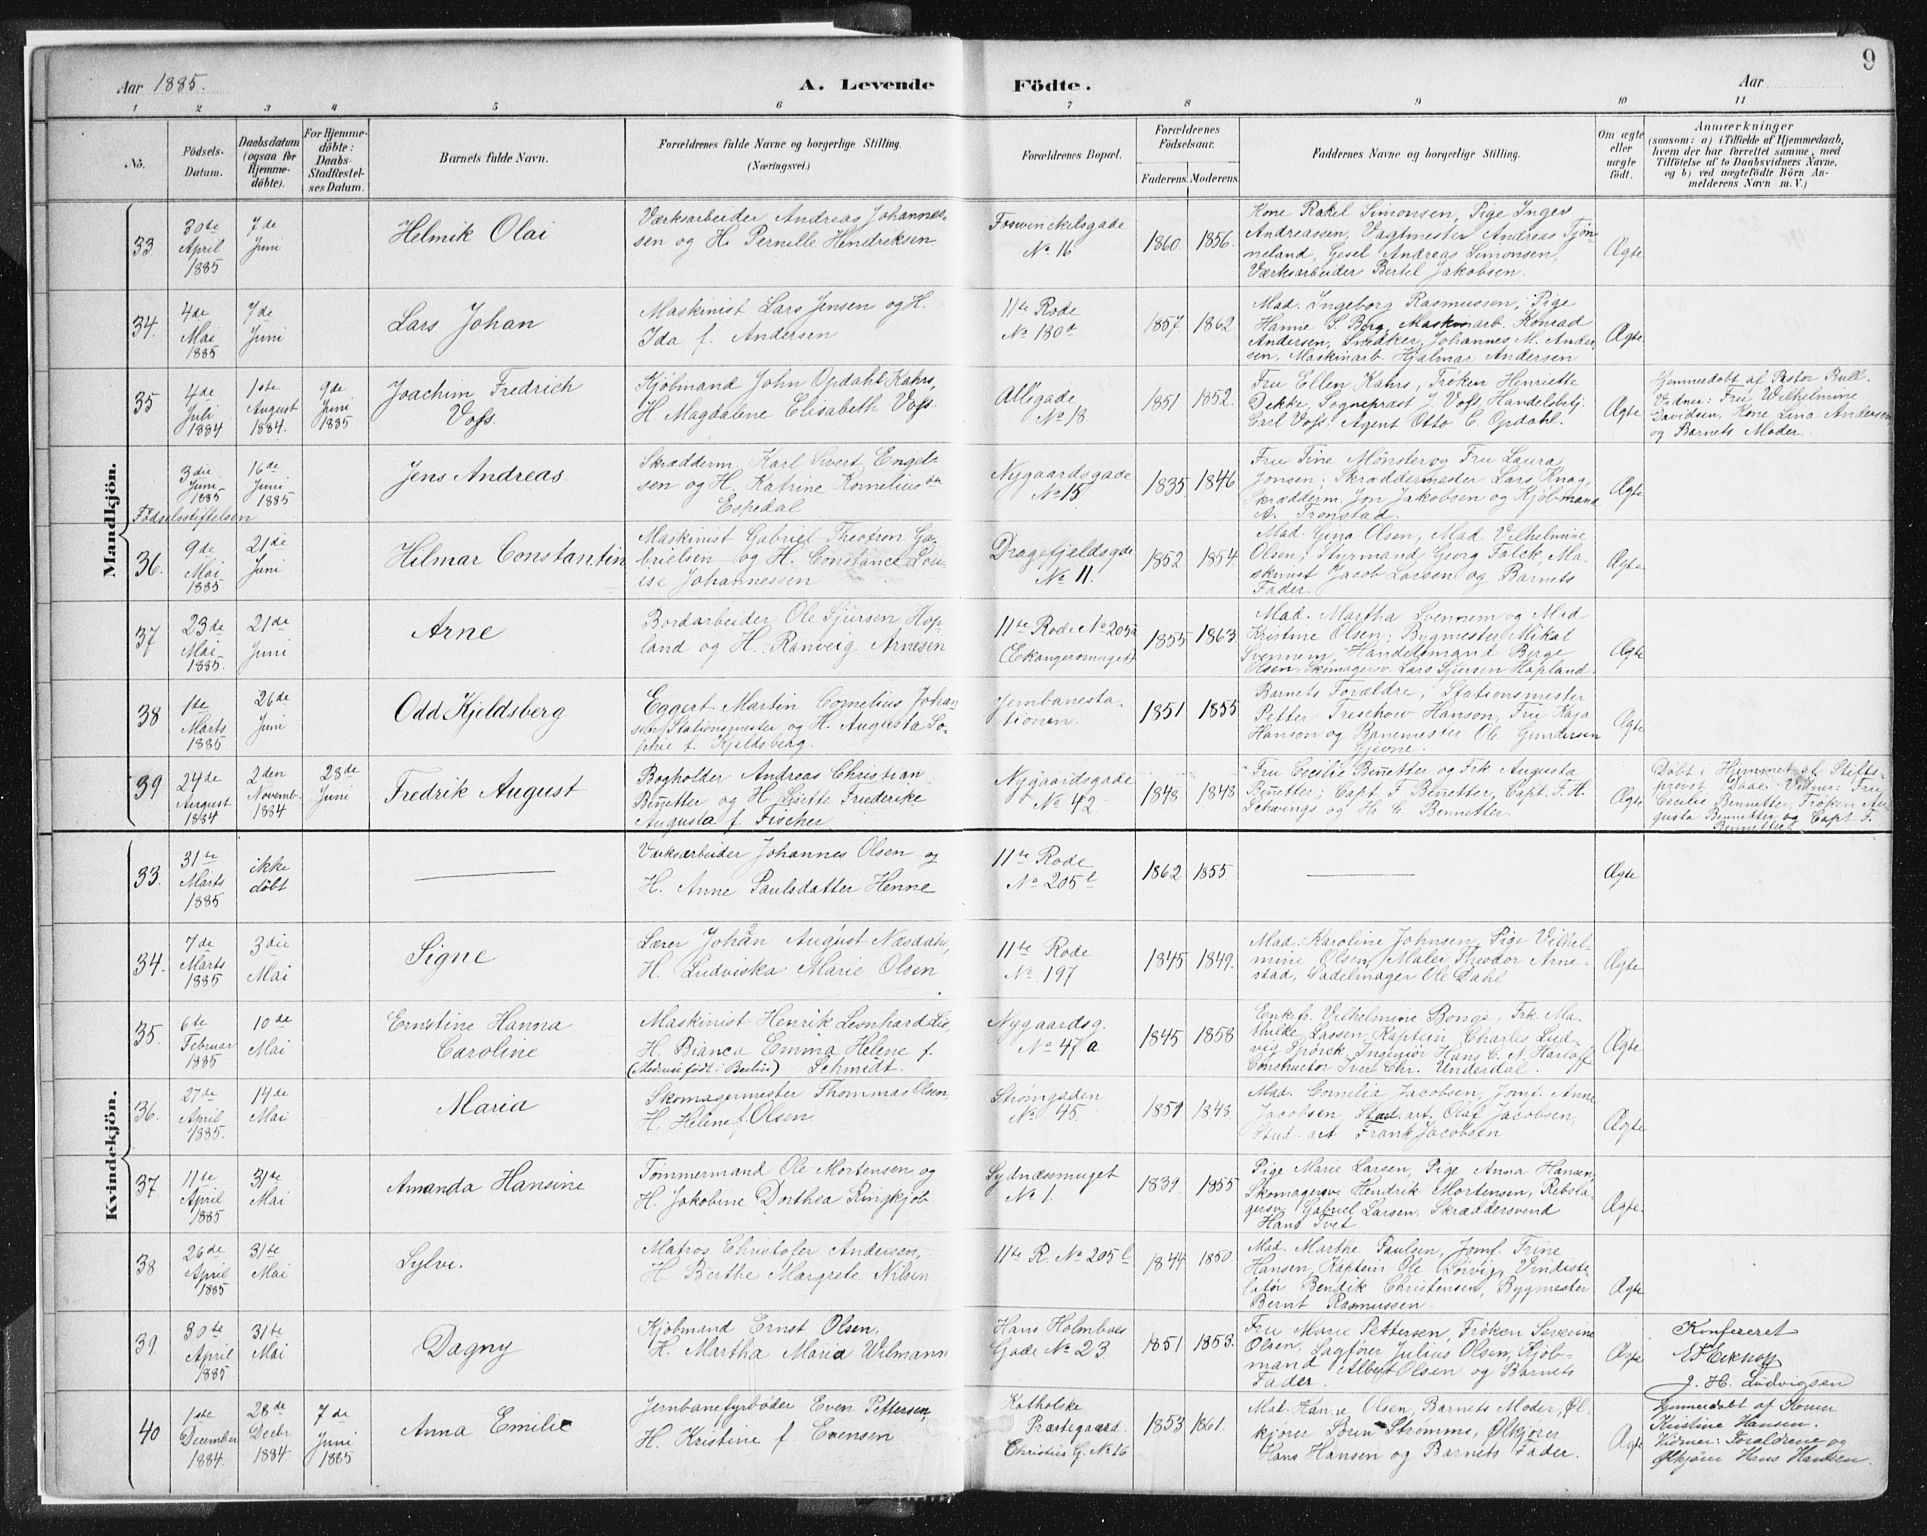 Aar 1885.
A. Levende Födte.
Aar
9
1 2 3 4 5 6 7 8 9 10 11
No.
Födsels-Datum.
Daabsdatum (ogsaa for Hjemmedöbte).
For Hjemmedöbte: Daabs-Stadfæstelses Datum.
Barnets fulde Navn.
Forældrenes fulde Navne og borgerlige Stilling. (Næringsvei.)
Forældrenes Bopæl.
Forældrenes Födselsaar.
Faderens. Moderens.
Faddernes Navne og borgerlige Stilling.
Om ægte eller uægte födt.
Anmærkninger (saasom: a) i Tilfælde af Hjemmedaab, hvem der har forrettet samme, med Tilföielse af to Daabsvidners Navne, og b) ved uægtefödte Börn Anmelderens Navn m. V.)
Mandkjön.
33 30te April 1885 7de Juni
Helmik Olai
Værksarbeider Andreas Johannes-
sen og H. Pernille Hendriksen
Foswinckelsgade
No 16
1860 1856.
Kone Rakel Simonsen, Pige Inger
Andreassen, Vagtmester Andreas Tjön-
neland, Gesel Andreas Simonsen,
Værksarbeider Bertel Jakobsen.
Ægte
34. 4de Mai 1885 7de Juni
Lars Johan
Maskinist Lars Jensen og H.
Ida f. Andersen
11te Rode
No 180d
1857 1862
Mad. Ingeborg Rasmussen, Pige
Hanne S. Berg, Maskinarb. Konrad
Andersen, Snedker Johannes M. Ander-
sen, Maskinarb. Hjalmar Andersen
Ægte
35 4de Juli 1884 1ste August 1884. 9de Juni 1885
Joachim Fredrich
Voss.
Kjöbmand John Opdahl Kahrs,
H. Magdalene Elisabeth Voss.
Allegade
No 18
1851 1852.
Fru Ellen Kahrs, Fröken Henriette
Dekke, Sognepræst J. Voss, Handelsbetj.
Carl Voss, Agent Otto C. Opdahl.
Ægte
Hjemmedöbt af Pastor Bull.
Vidner: Fru Wilhelmine
Davidsen, Kone Lina Andersen
og Barnets Moder.
3die Juni 1885 16de Juni 1885
Födselsstiftelsen
Jens Andreas
Skrædderm. Karl Sivert Engel-
sen og H. Katrine Kornelius dtr
Espedal
Nygaardsgade
No 15
1835 1846
Fru Tine Mönster og Fru Laura
Jonsen; Skræddermester Lars Knag,
Skrædderm. Jon Jakobsen og Kjöbmand
A. Tronstad.
Ægte
36. 9de Mai 1885 21de Juni
Hilmar Constantin
Maskinist Gabriel Theotron Ga-
brielsen og H. Constance Lou-
ise Johannessen
Dragefjeldsgade
No 11.
1852 1854
Mad. Gina Olsen, Mad. Vilhelmine
Olsen, Styrmand Georg Falck, Ma-
skinist Jacob Larsen og Barnets
Fader.
Ægte
37 23de Mai 1885. 21de Juni
Arne
Bordarbeider Ole Sjursen Hop-
land og H. Ranveig Arnesen
11te Rode No 205a
(Ekangersmuget)
1855 1863.
Mad. Martha Svennem og Mad
Kristine Olsen; Bygmester Mikal
Svennem, Handelsmand Berge
Olsen, Skomagersv. Lars Sjursen Hopland
Ægte
38 1ste Marts 1885 26de Juni
Odd Kjeldsberg
Eggert Martin Cornelius Johan-
sen, Stationsmester og H. Augusta So-
phie f. Kjeldsberg.
Jernbanesta-
tionen.
1851 1855
Barnets Forældre, Stationsmester
Petter Treschow Hanson, Fru Kaja
Hanson og Banemester Ole Gundersen
Ægte
39 24de August 1884 2den Novemb. 1884 28de Juni
Fredrik August
Bogholder Andreas Christian
Bennetter og H. Lisette Friederike
Augusta f. Fischer
Nygaardsgade
No 42
1848 1848
Fru Cecilie Bennetter og Frk Augusta
Bennetter; Capt. F Bennetter, Capt. F. A.
Schwings og H. C. Bennetter.
Ægte
Döbt i Hjemmet af Stifts-
provst Daae. Vidner: Fru
Cecilie Bennetter, Fröken Au-
gusta Bennetter og Capt. F.
Bennetter.
Kvindekjön.
33. 31te Marts 1885 ikke döbt
Værksarbeider Johannes Olsen og
H. Anne Paulsdatter Henne
11te Rode
No 205l
1862 1855
Ægte
34. 7de Marts 1885 3die Mai
Signe
Lærer Johan August Næsdahl,
H. Ludviska Marie Olsen
11te Rode
No 197
1845 1849.
Mad. Karoline Johnsen, Pige Vilhel-
mine Olsen, Maler Theodor Arne-
stad, Sadelmager Ole Dahl
Ægte
35. 6te Februar 1885 10de Mai
Ernstine Hanna
Caroline
Maskinist Henrik Leonhard Lie,
H. Bianca Emma Helene f.
(Moderen födt i Berlin) Schmidt.
Nygaardsg.
No 47a
1845 1858
Enkefr. Vilhelmine Bonge, Frk. Ma-
thilde Lassen, Kaptein Charles Lud-
vig Spörck, Ingeniör Hans C. N. Hanoff
Constructor Iver Chr. Underdal.
Ægte
36. 27de April 1885. 14de Mai
Maria
Skomagermester Thommas Olsen,
H. Helene f. Olsen.
Strömgaden
No 45.
1851 1848.
Mad. Cornelia Jacobsen, Jomf. Anne
Jacobsen, Stud. art. Olaf Jacobsen,
Stud. art Frank Jacobsen
Ægte
37 11te April 1885 31te Mai
Amanda Hansine
Tömmermand Ole Mortensen og
H. Jakobine Dorthea Ringkjob
Sydnæsmuget
No 1.
1839. 1855
Pige Marie Larsen, Pige Anna Hansen,
Skomagersv. Hendrik Mortensen, Rebsla-
gersv. Gabriel Larsen, Skræddersvend
Hans Tvet
Ægte.
38 26de April 1885 31te Mai
Sylvi.
Matros Christofer Andersen,
H. Berthe Margrete Nilsen
11te R. No 205l
1844 1850.
Mad. Marthe Paulsen, Jomf. Trine
Hansen, Kaptein Ole Loivig, Vindiste-
latör Bendik Christensen, Bygmester
Bernt Rasmussen.
Ægte
39 30te April 1885 31te Mai
Dagny
Kjöbmand Ernst Olsen,
H. Martha Maria Wilmann
Hans Holmboes
Gade No 23
1851 1853.
Fru Marie Pettersen, Fröken Severine
Olsen, Sagförer Julius Olsen, Kjöb-
mand Albert Olsen og Barnets
Fader.
Ægte
Konfereret
J. H. Ludvigsen
40 1ste December 1884. 28de Decbr 1884. 7de Juni 1885
Anna Emilie
Jernbanefyrböder Even Pettersen
H. Kristine f Evensen
Katholske
Præstegaard.
Christies G. No 16
1853 1861.
Mad. Hanne Olsen, Barnets Moder, Öl-
kjörer Sören Strömme, Ölkjörer
Hans Hansen og Barnets Fader.
Ægte
Hjemmedöbt af Konen
Kristine Hansen.
Vidner: Forældrene og
Ölkjörer Hans Hansen.